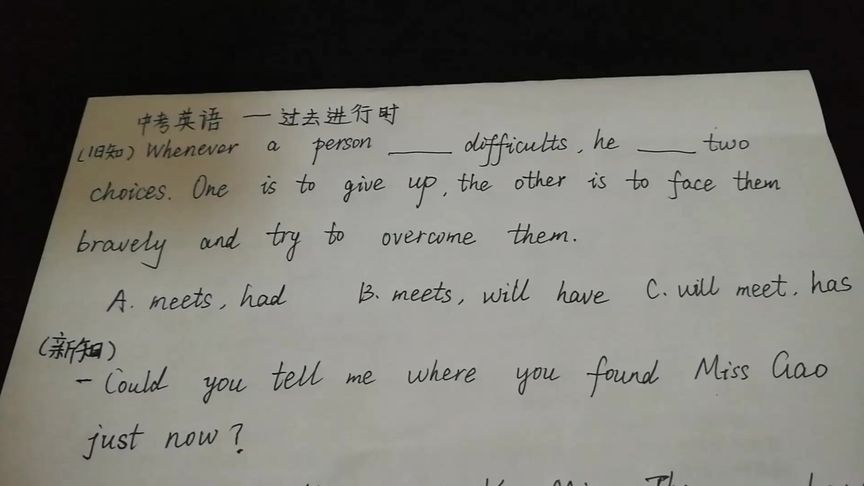 中考英语 — 过去进行时
(旧知) Whenever a person ____ difficults, he ____ two
choices. One is to give up, the other is to face them
bravely and try to overcome them.
A. meets, had B. meets, will have C. will meet, has
(新知)
- Could you tell me where you found Miss Gao
just now?